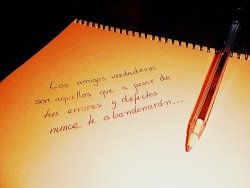 Los amigos verdaderos
son aquellos que a pesar de
tus errores y defectos
nunce te abandonarán...